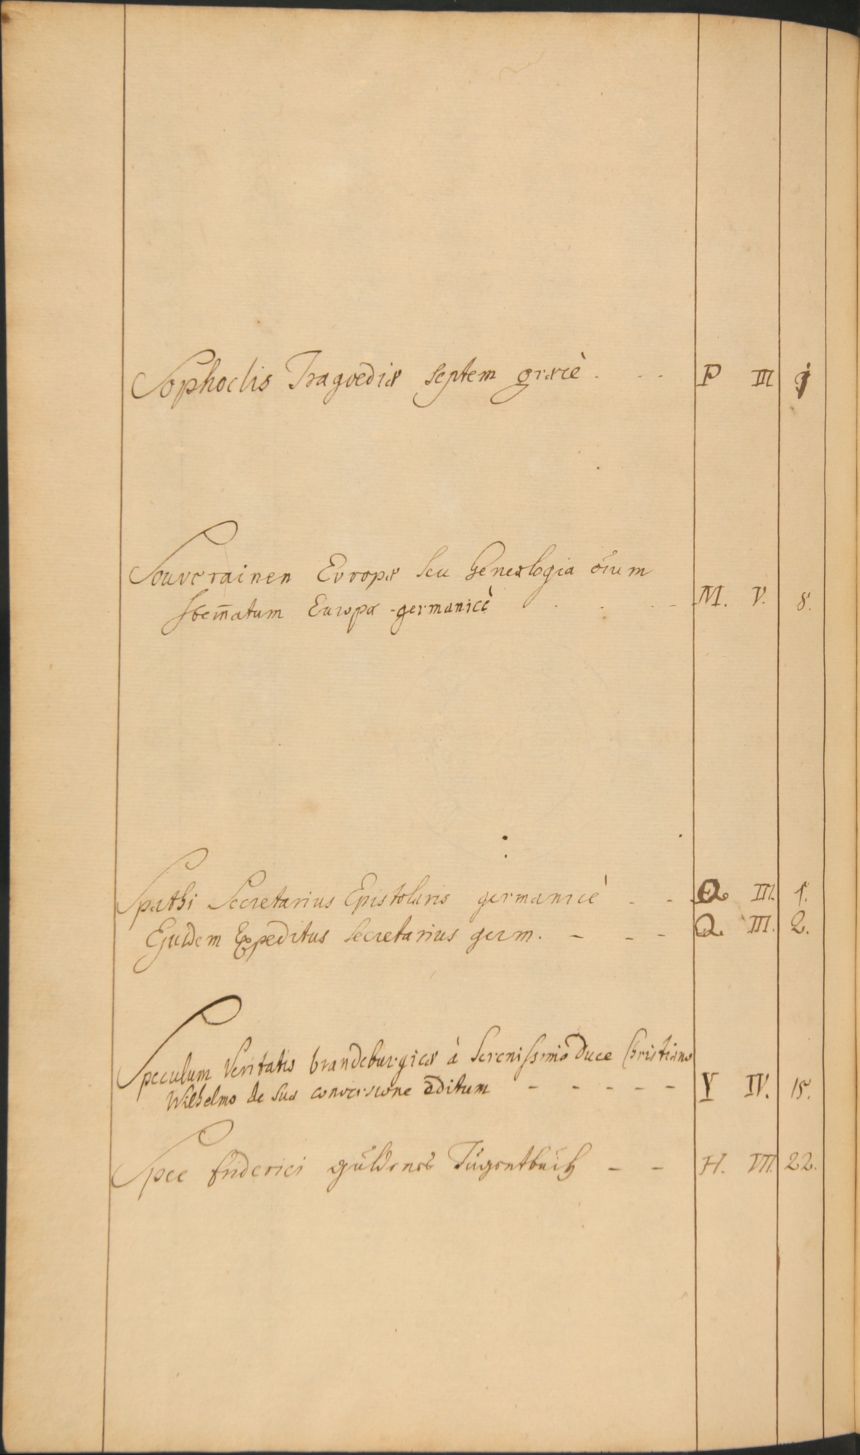 Sophoclis Tragoediæ septem græcè . . . P III
Souvrainen Evropæ seu Genealogia oĩum
stem̄atum Europæ germanicè . . . M. V. 8.
Spathi Secretarius Epistolaris germanicè - - Q III. 1.
Ejusdem Expeditus secretarius germ. - - - Q III. 2.
Speculum Veritatis brandeburgicæ à Serenissimo Duce Christiano
Wilhelmo de sua conversione editum - - - - - Y IV. 15.
Spee friderici güldenes Tügentbuch - - H. VII. 22.